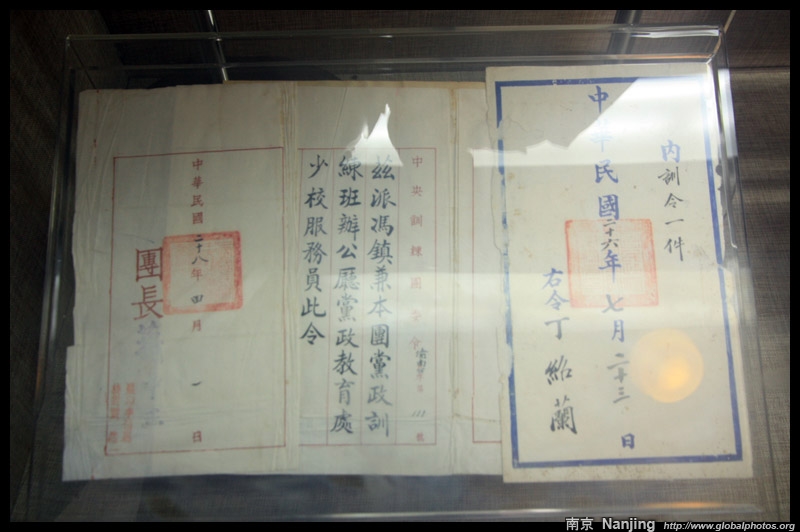 內訓令一件
中華民國二十六年七月二十三日
右令丁紹蘭
中央訓練團令
茲派馮鎮兼本團黨政訓
練班辦公廳黨政教育處
少校服務員此令
中華民國二十八年四月一日
團長
南京 Nanjing http://www.globalphotos.org